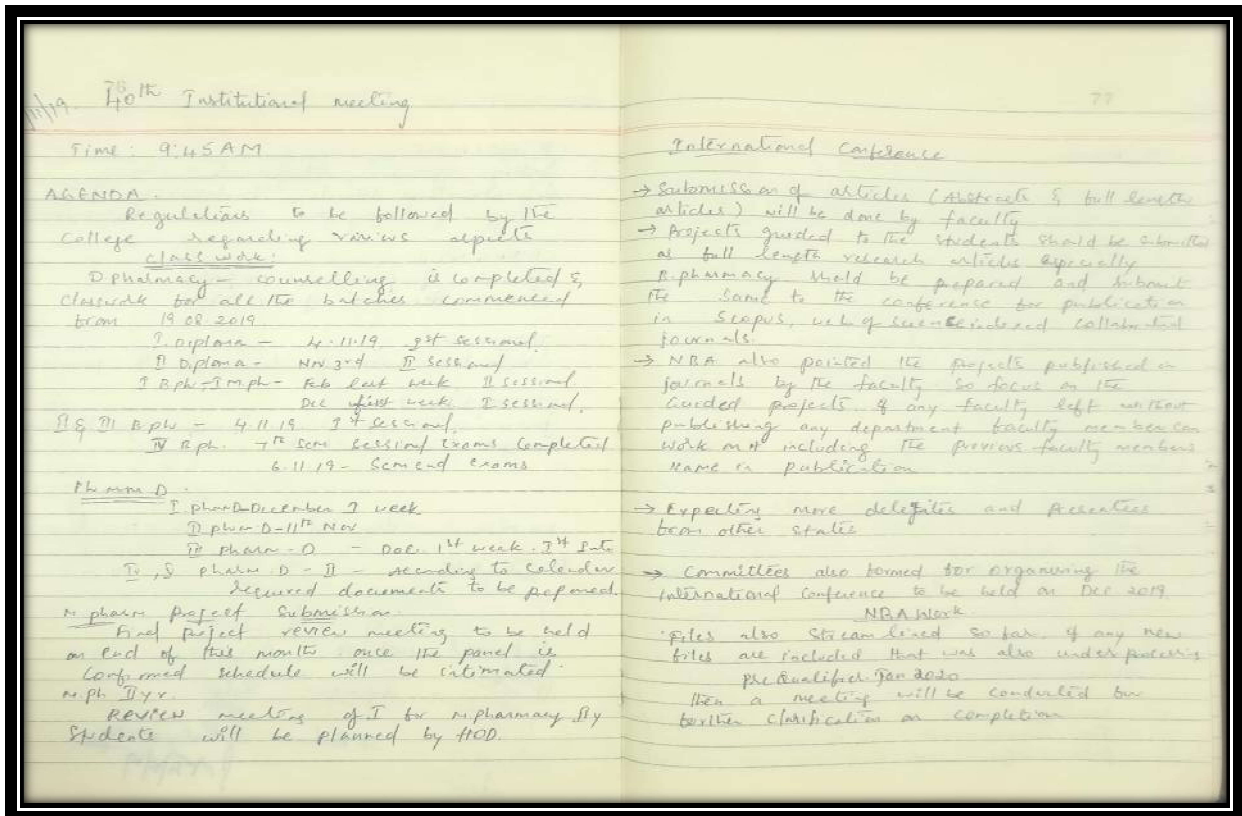 /11/19. 40th Institutional meeting
Time: 9:45AM
AGENDA.
Regulations to be followed by the
College regarding various aspects
class work:
D pharmacy - counselling is completed &
Classwork for all the batches commenced
from 19.08.2019
I. Diploma - 4.11.19 Ist sessional.
II Diploma - Nov 3rd II sessional
I Bph - I Mph - Feb last week II sessional
Dec first week I sessional.
II & III Bph - 4.11.19 Ist sessional.
IV Bph. 7th Sem sessional exams completed
6.11.19 - Sem end exams
Pharm D.
I pharD-December I week.
II pharm D-11th Nov
III pharm-D - Dec. 1st week. Ist
pharm.D - II - According to Calendar
required documents to be prepared.
M pharm Project Submission.
Final project review meeting to be held
on end of this month once the panel is
Confirmed schedule will be intimated.
M.ph IIyr.
Review meeting of I for M.pharmacy IIy
Students will be planned by HOD.
77
International Conference
→ Submission of articles (Abstracts & full length
articles) will be done by faculty
→ Projects guided to the students should be submitted
as full length research articles especially
B.pharmacy shold be prepared and submit
the same to the conference for publication
in Scopus, web of science indexed collaborated
journals.
→ NBA also pointed the projects published in
journals by the faculty so focus on the
Guided projects. if any faculty left without
publishing any department faculty member can
work on it including the previous faculty members
Name in publication
→ Expecting more delegates and presenters
from other states
→ Committees also formed for organising the
International Conference to be held on Dec 2019.
NBA Work
Files also Stream lined so far. if any new
files are included that was also under process
pre Qualifier Jan 2020
then a meeting will be conducted for
further clarification on completion